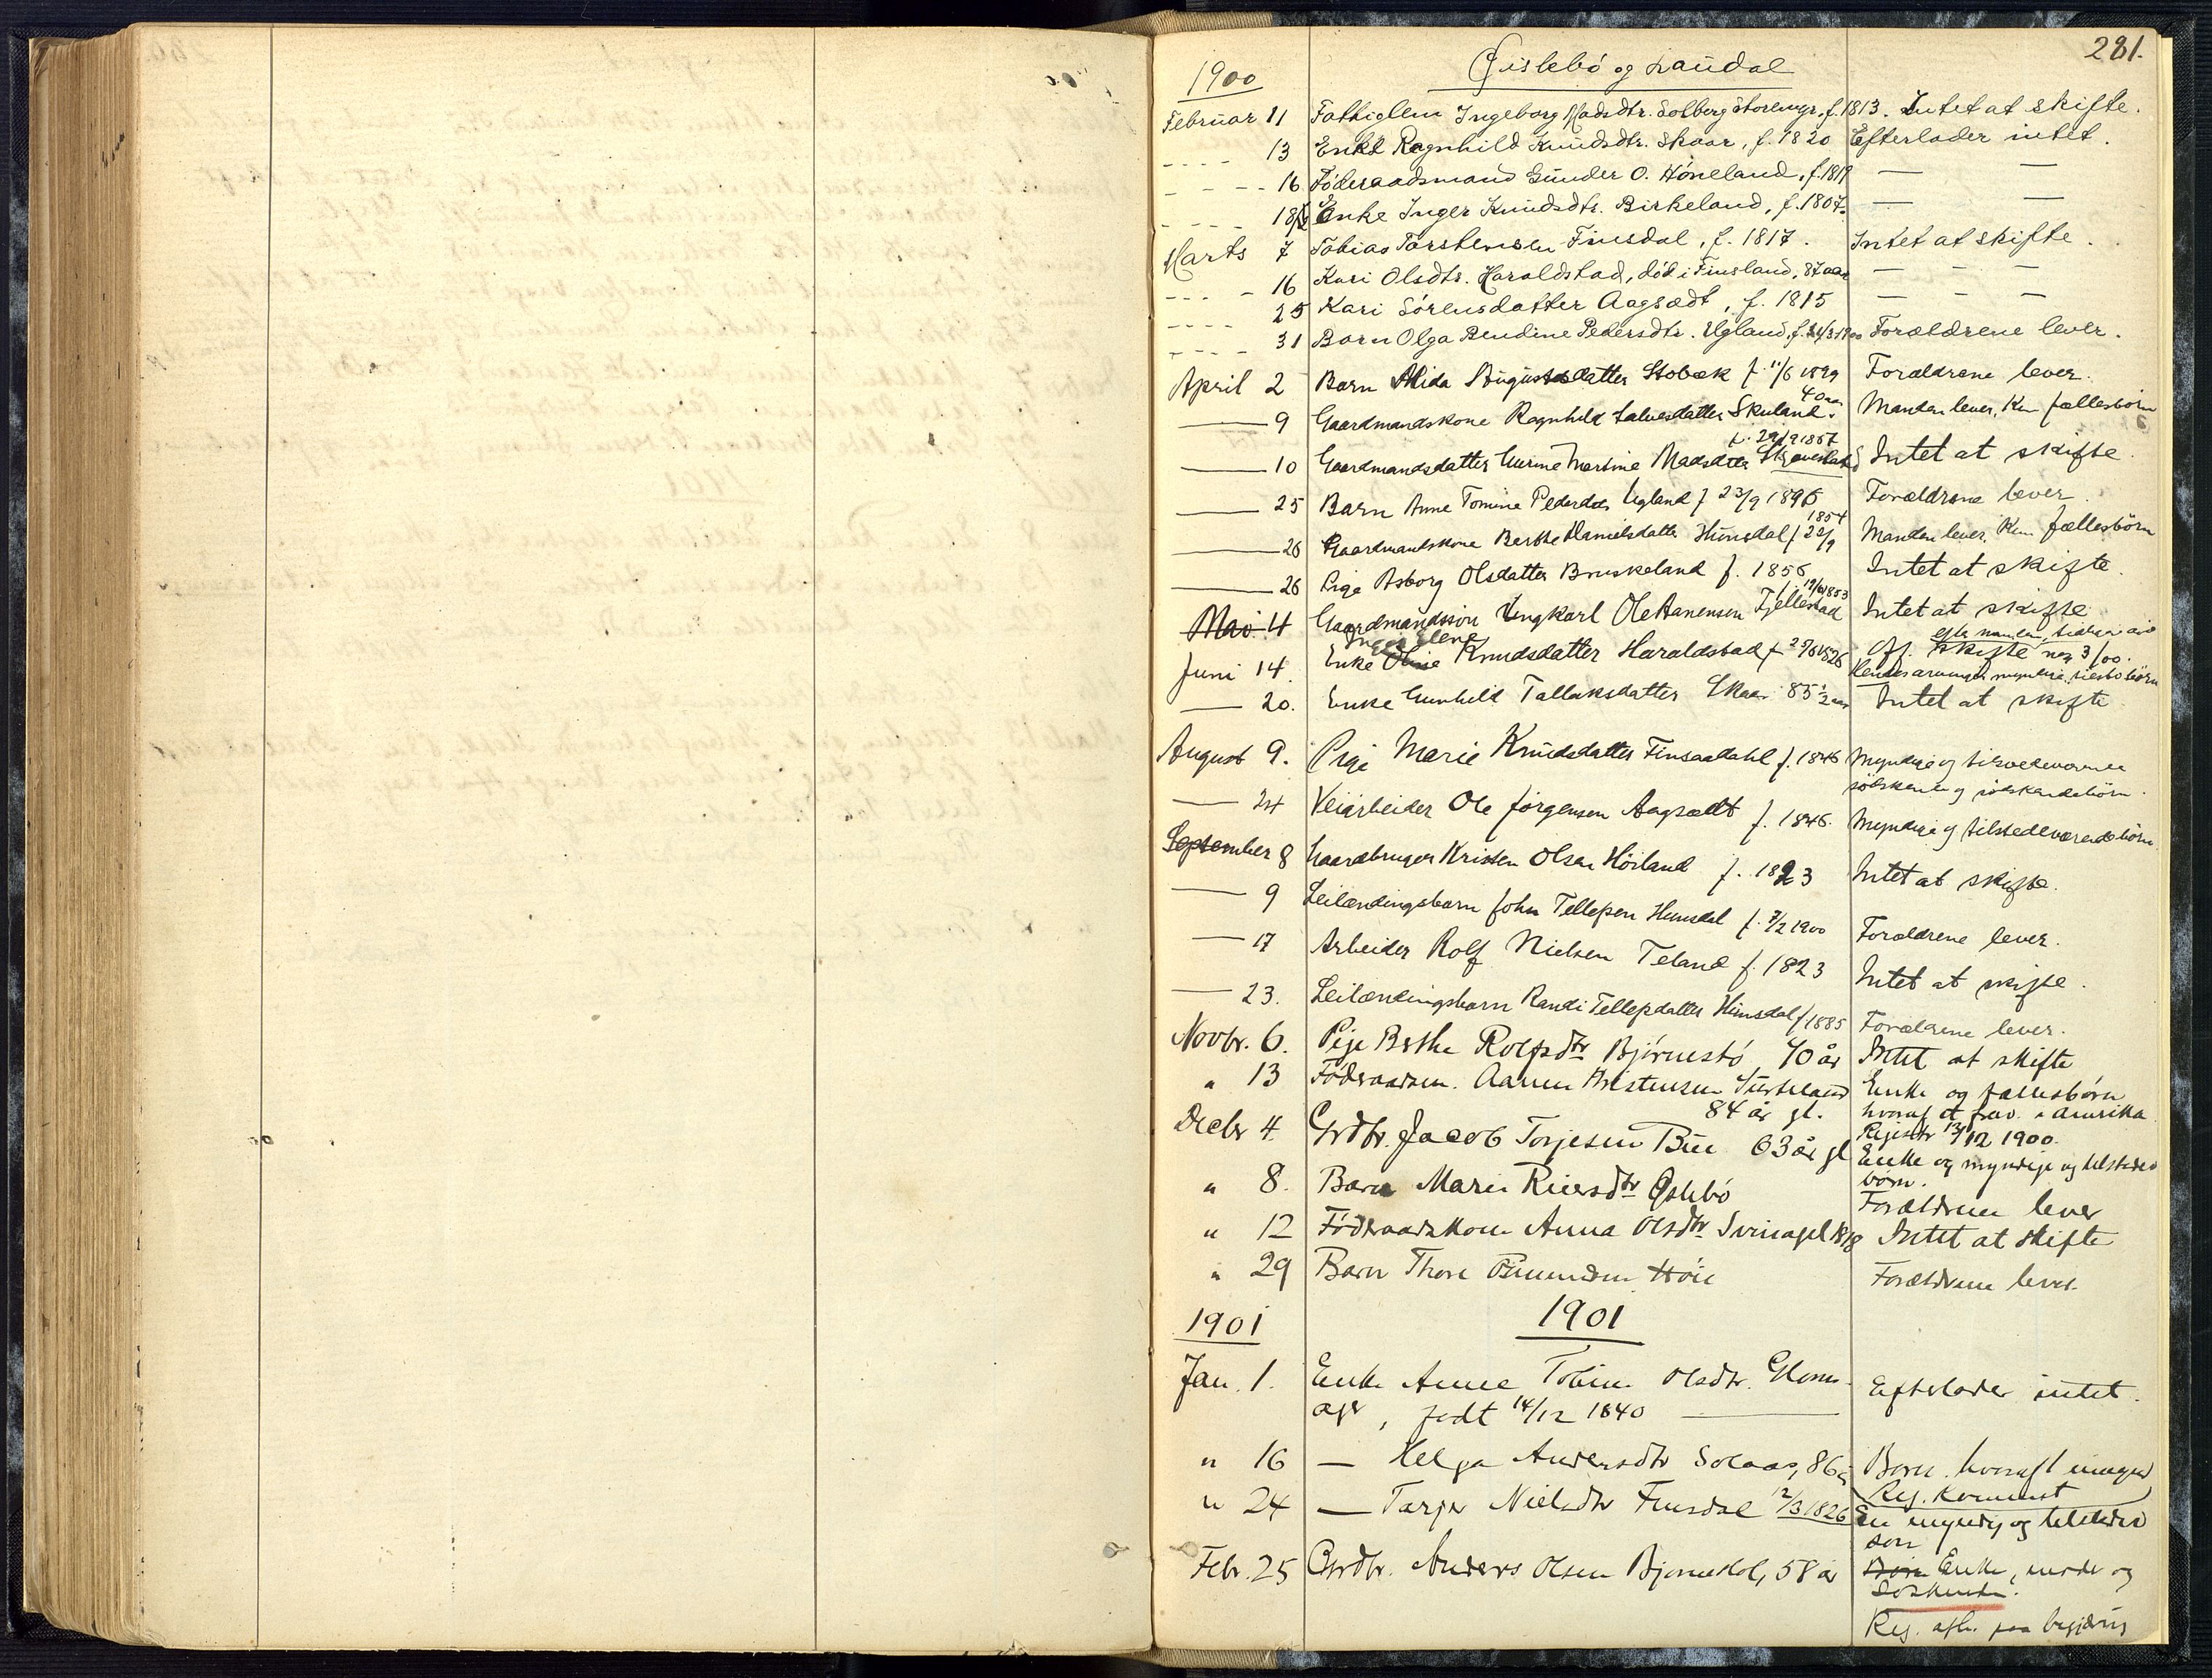 281.
1900 Øislebö og Laudal
Februar 11 Fattiglem Ingeborg Madsdtr. Solberg Storemyr, f. 1813. Intet at skifte.
---- 13 Enke Ragnhild Knudsdtr. Skaar, f. 1820 Efterlader intet.
---- 16 Föderaadsmand Gunder O. Höneland, f. 1819 — —
---- 18 Enke Inger Knudsdtr. Birkeland, f. 1807. — —
Marts 7 Tobias Tarstensen Finsdal, f. 1817. Intet at skifte.
---- 16 Kari Olsdtr. Haraldstad, död i Finsland, 87 aar — — —
---- 25 Kari Sörensdatter Aagsædt, f. 1815 — — —
---- 31 Barn Olga Bendine Pedersdtr. Ugland, f. 1900 Forældrene lever.
April 2 Barn Alida Augustsdatter Stobæk f. 11/6 1899 Forældrene lever.
40 aar
— 9 Gaardmandskone Ragnhild Salvesdatter Skuland. Manden lever, Kun fællesbörn
f. 29/9 1857
— 10 Gaardmandsdatter Gurine Martine Madsdtr Intet at skifte.
— 25 Barn Anne Tomine Pedersdtr Ugland f 23/9 1896 Forældrene lever.
1854
— 26 Gaardmandskone Berthe Danielsdatter Hunsdal f 22/9 Manden lever. Kun fællesbörn
— 26 Pige Asborg Olsdatter Bruskeland f. 1856 Intet at skifte.
Mai 4 Gaardmandssön Ungkarl Ole Aanensen Fjellestad Intet at skifte
Inger Elene
Juni 14. Enke Knudsdatter Haraldstad Off. skifte 3/00.
— 20. Enke Gunhild Tallaksdatter Skaar 85 1/2 aar Intet at skifte
August 9. Pige Marie Knudsdatter Finsaadahl f. 1846 Myndige og tilstedeværende
södskende og södskendebörn.
— 24 Veiarbeider Ole Jörgensen Aagsædt f. 1846. Myndige og tilstedeværende börn.
September 8 Gaardbruger Kristen Olsen Höiland f. 1823 Intet at skifte.
— 9 Leilændingsbarn John Tellefsen Hunsdal f. 7/2 1900 Forældrene lever.
— 17 Arbeider Rolf Nielsen Teland f. 1823 Intet at skifte.
— 23. Leilændingsbarn Randi Tellefsdatter Hunsdal f 1885 Forældrene lever.
Novbr. 6. Pige Berthe Rolfsdtr Bjørnestö 70 år Intet at skifte
" 13 Föderaadsm. Aanen Kristensen Enke og fællesbörn
84 år gl. hvoraf et frav. i Amerika
Registr 13/12 1900.
Decbr 4. Grdbr. Jacob Torjesen Bue 63 år gl Enke og myndige og tilstedev
börn.
" 8. Barn Marie Øslebö Forældrene lever
" 12 Föderaadskone Anna Olsdtr Svinagel 1818 Intet at skifte
" 29 Barn Thore Höie Forældrene lever.
1901 1901
Jan. 1. Enke Anne Tobine Olsdtr. Glomsager, födt 14/12 1840 — Efterlader intet.
" 16 — Helga Andersdtr Solaas, 86 år Børn. hvoraf 1 umynd
Reg. kommet
" 24 — Tarjer Nielsdtr Finsdal 12/3 1826 En myndig og tilstedev
sön
Febr. 25 Grdbr. Anders Olsen Bjørnestöl, 58 år Enke, moder og
söskende.
Reg. afh. paa begjæring